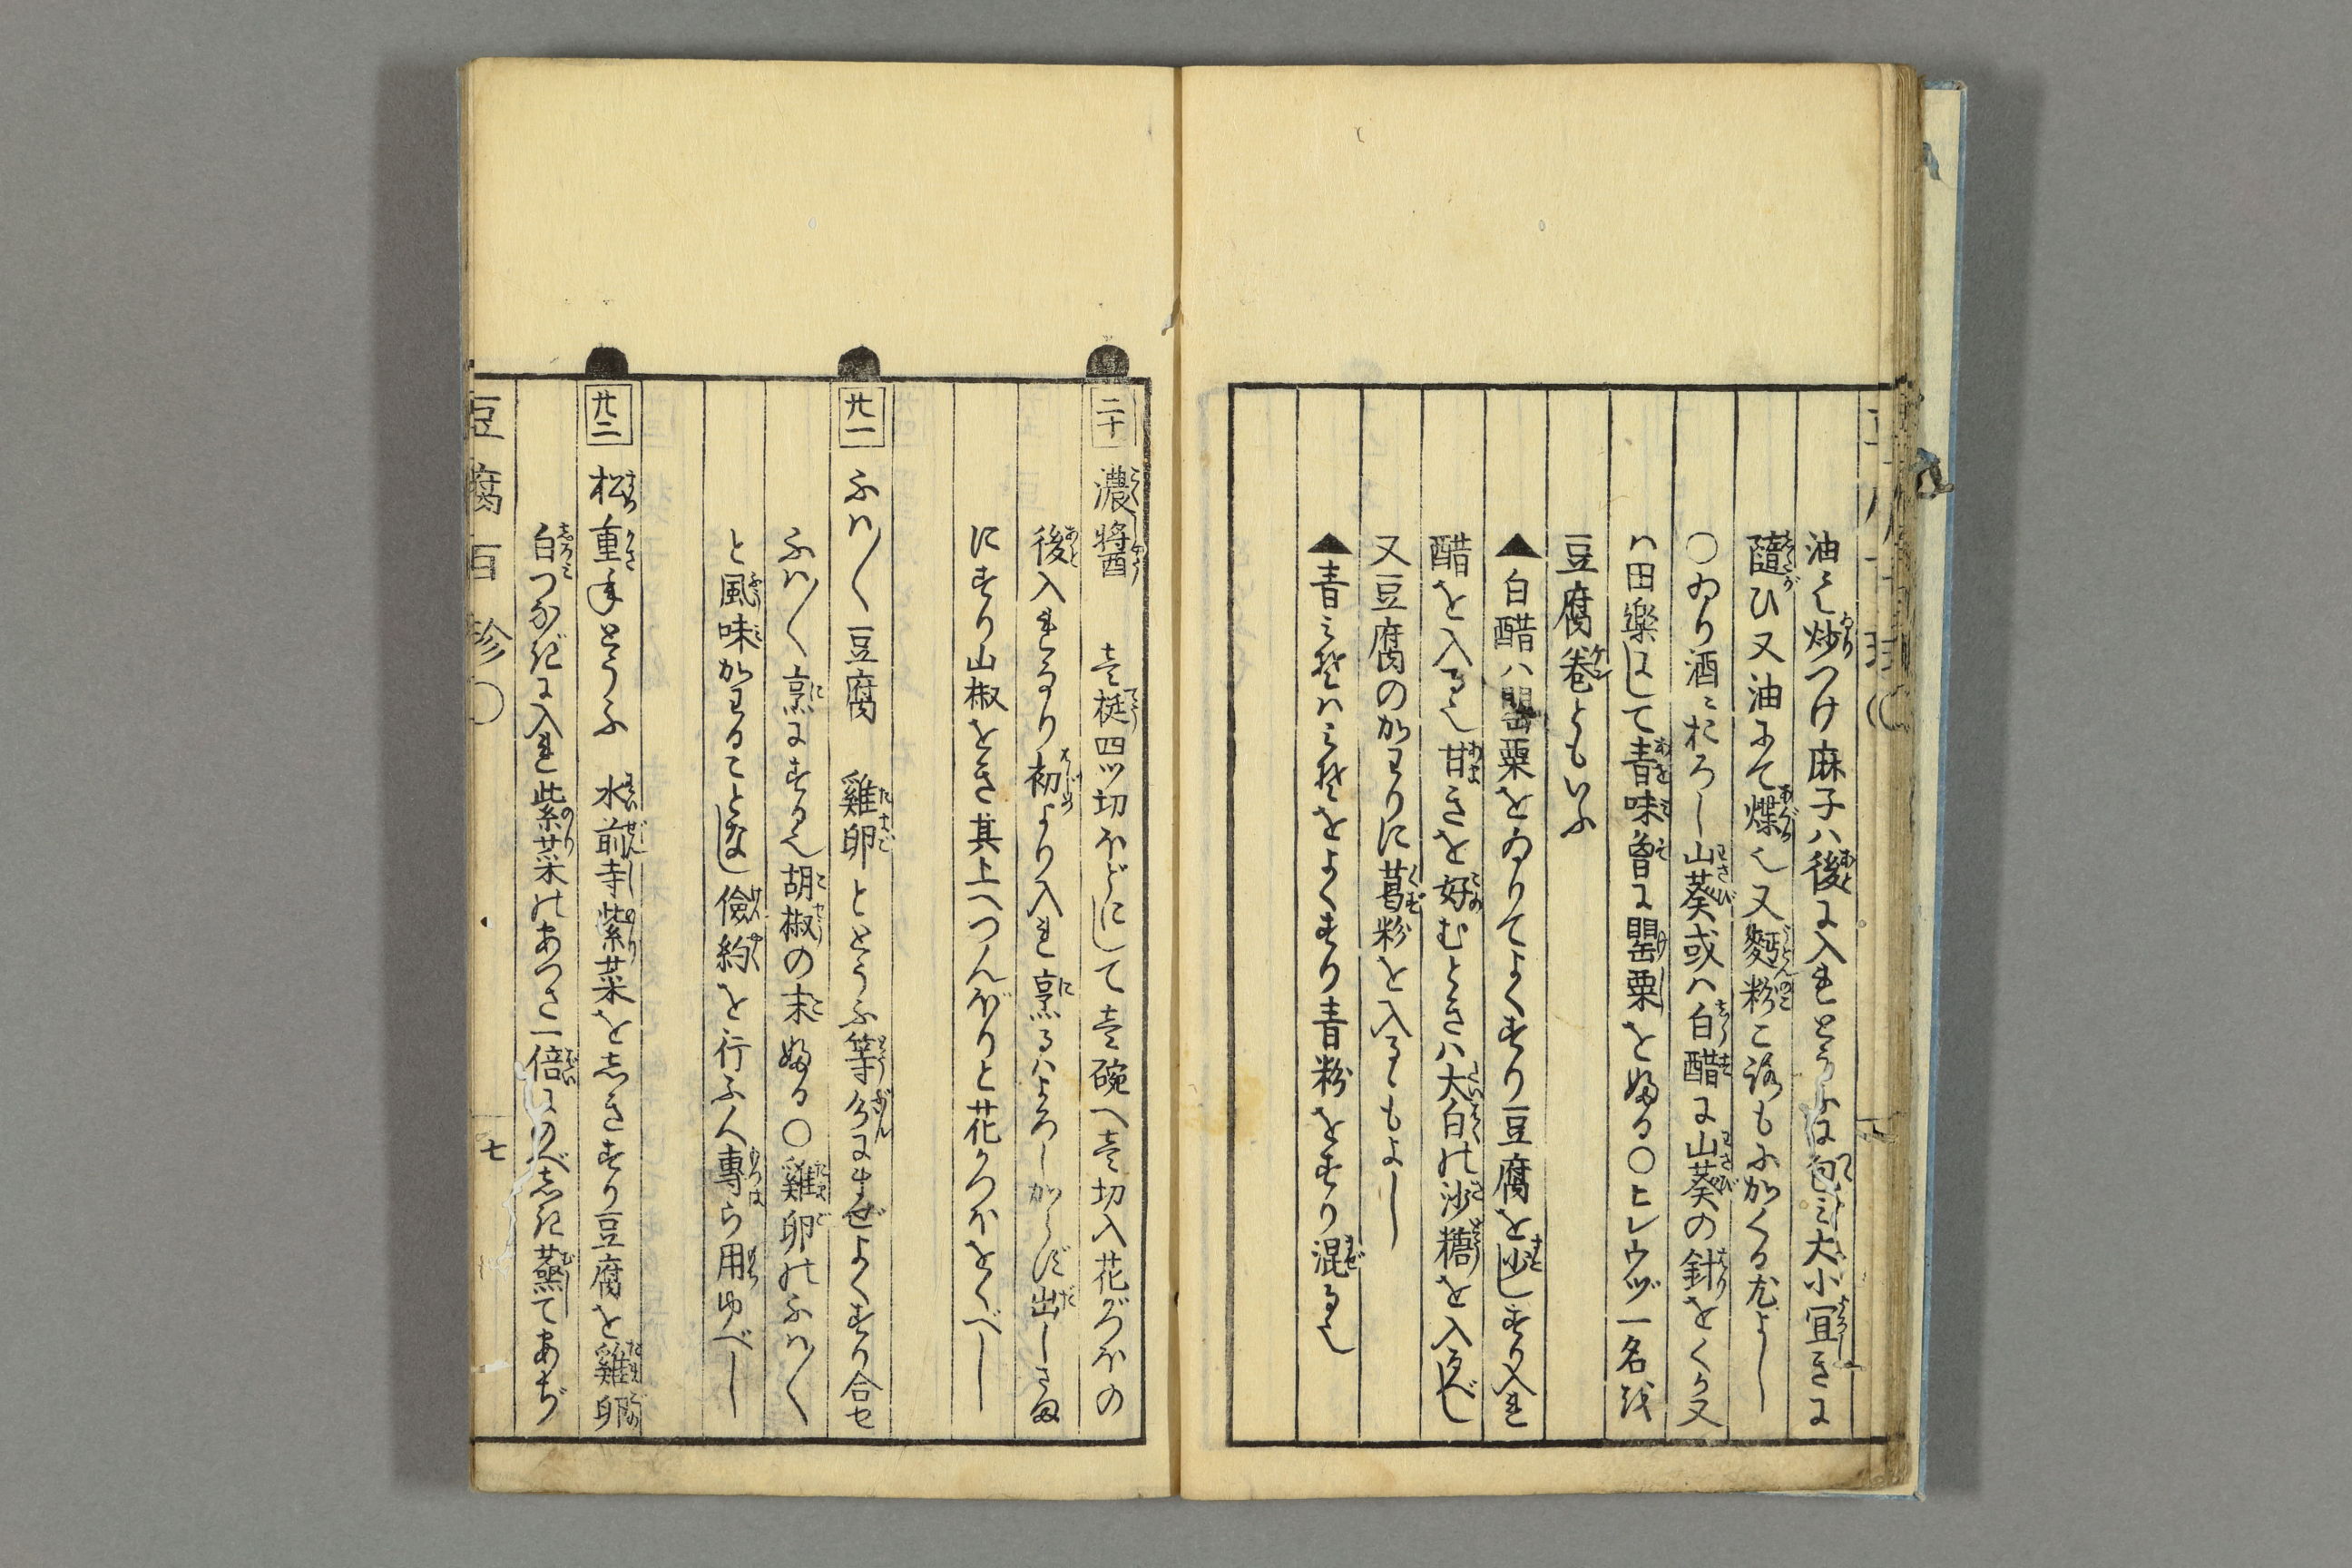 油にて炒つけ麻子ハ後に入れとうふに包ミ大小宜きに
隨ひ又油にて煠也又麪粉ころもにかくる尤よし
○ゐり酒ニおろし山葵或ハ白醋に山葵の針をくか又
ハ田楽にして青味曾に罌粟をふる○ヒレウヅ一名を
豆腐巻ともいふ
▲白醋ハ罌粟をゐりてよくすり豆腐を少しすり入れ
醋を入る也甘きを好むときハ大白の沙糖を入べし
又豆腐のかわりに葛粉を入るゝもよし
▲青ミそハミそをよくすり青粉をすり混る也
二十 濃醤 壱挺四ツ切ほどにして壱碗へ壱切入花がつほの
後入れなり初より入れ烹るハよろしからず出しさま
にすり山椒をき其上へつんぼりと花かつほをくべし
廿一 ふハ〱豆腐 雞卵ととうふ等分にまぜよくすり合セ
ふハ〱烹にする也胡椒の末ふる○雞卵のふハ〱
と風味かわることなし儉約を行ふ人專ら用ゆべし
廿二 松重ねとうふ 水前寺紫菜をしきすり豆腐を雞卵
白つなぎに入れ紫菜のあつさ一倍にのべしき蒸てあぢ
豆腐百珍○
七